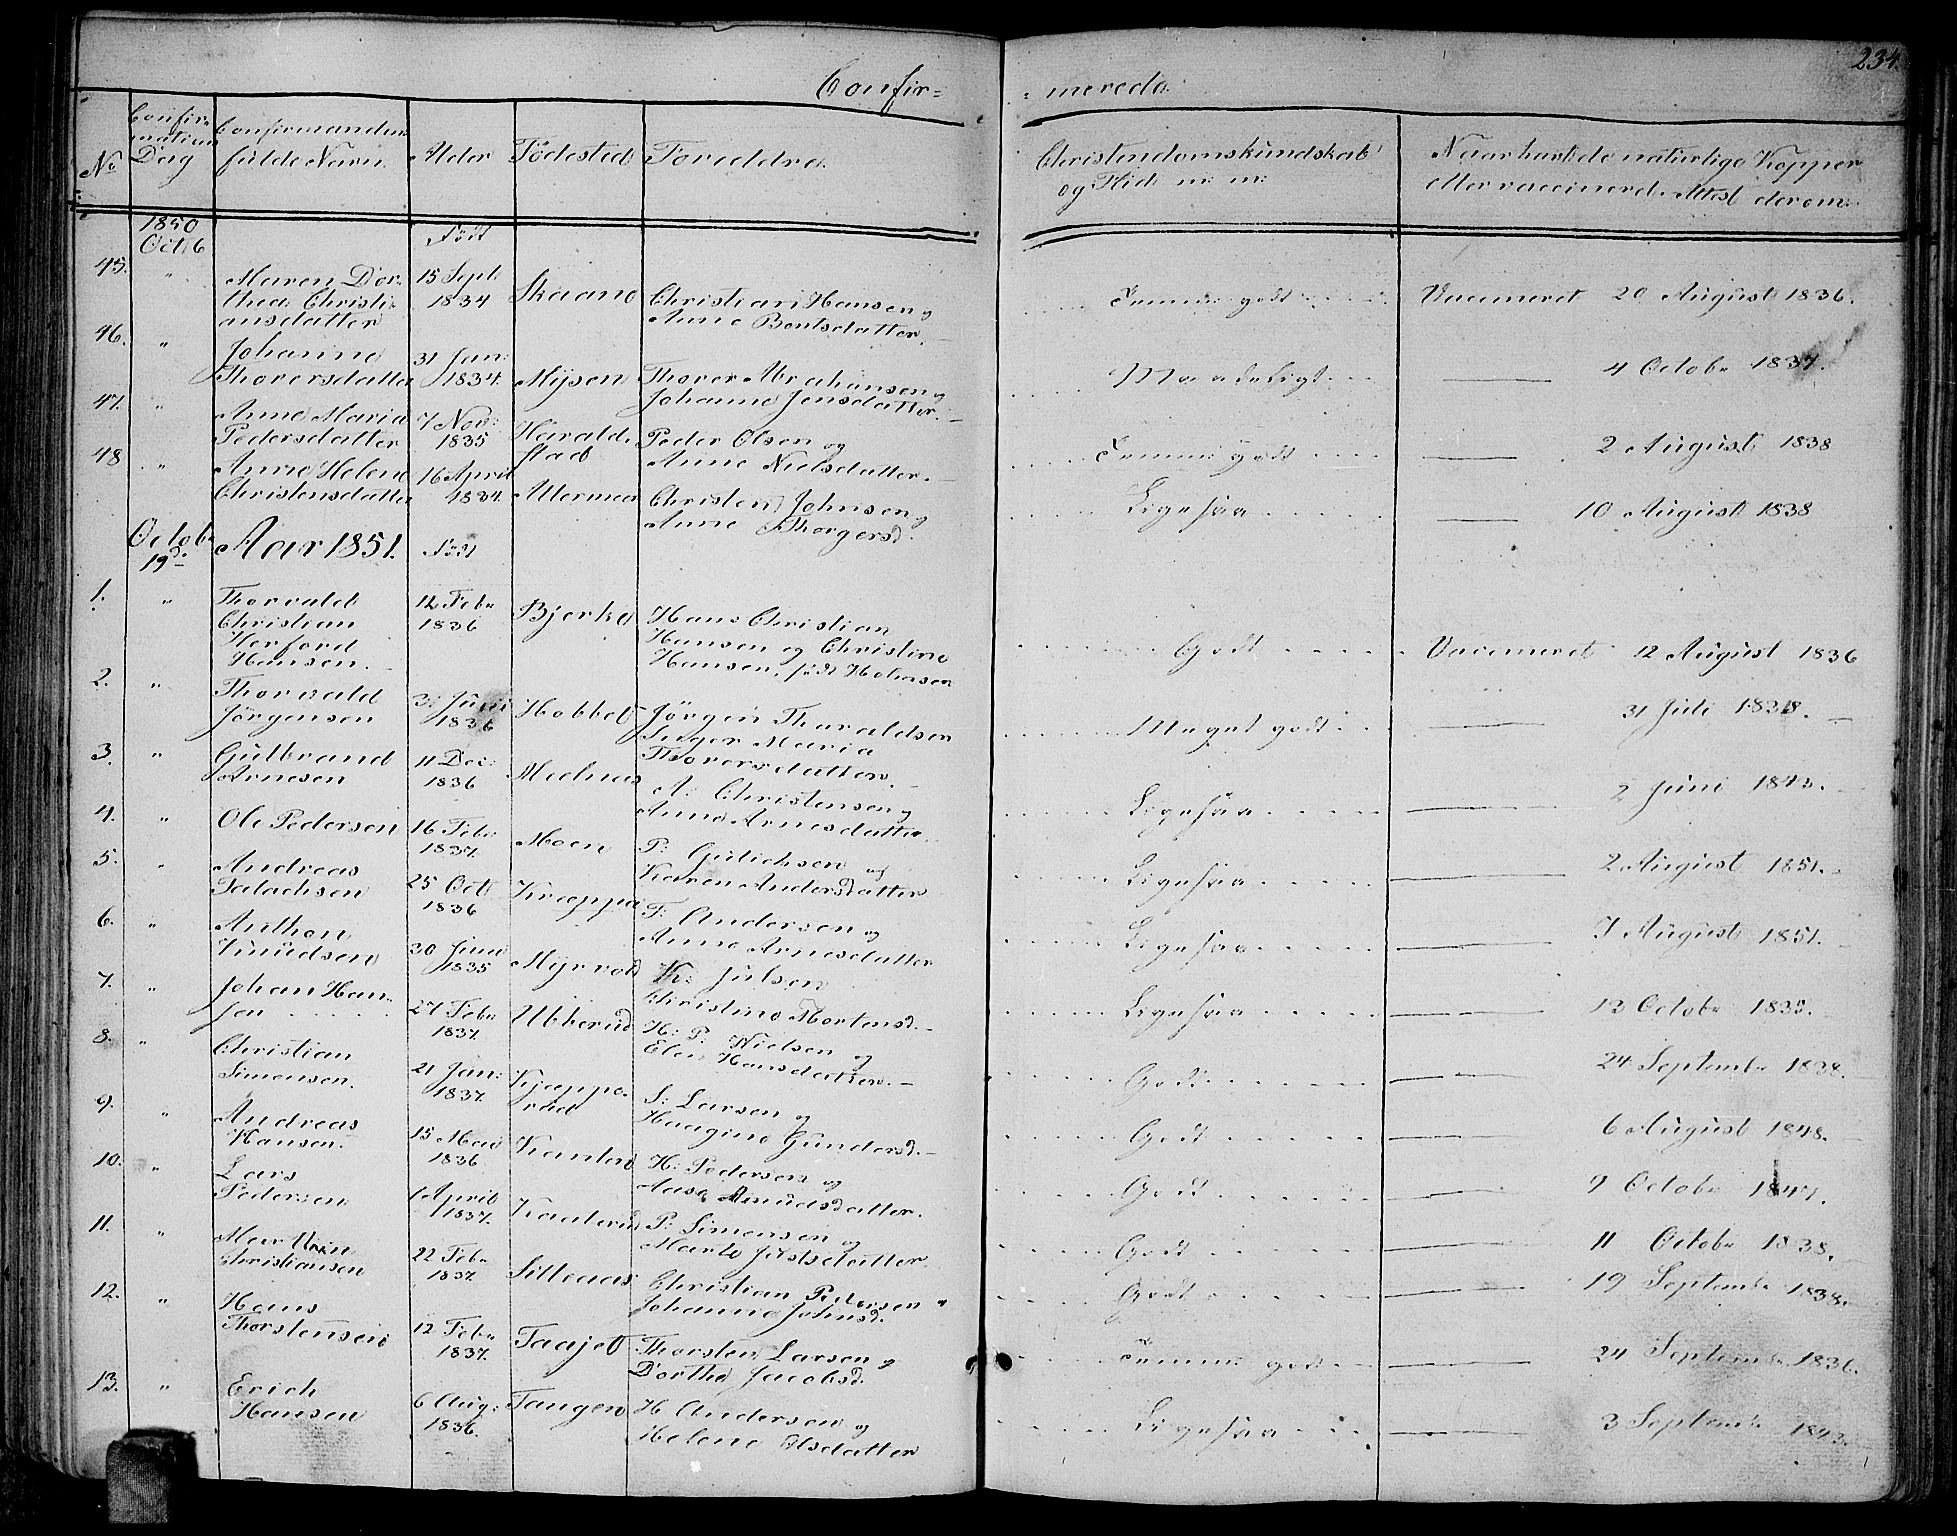 234.
Confir= =merede.
No
Confir=
mations
Dag
Confirmandens
fulde Navn.
Alder
Födested
Forældre.
Christendomskundskab
og Flid m: m:
Naar havt de naturlige Kopper
eller vaccinerd. Attest derom.
1850
Oct. 6
Födt
45. " Maren Dor-
thea Christi-
ansdatter
15 Sept.
1834
Skaane
Christian Hansen og
Anne Bentsdatter.
Temmi godt
Vaccineret 20 August 1836.
46. " Johanne
Thorersdatter
31 Jan:
1834.
Mysen
Thorer Abrahansen og
Johanne Jensdatter.
Maadeligt
4 Octobr 1837.
47. " Anne Maria
Pedersdatter
7 Nov:
1835
Harald-
stad
Peder Olsen og
Anne Nielsdatter.
Temmi godt
2 August 1838
48 " Anne Helene
Christensdatter
16 April
1834.
Christen Johnsen og
Anne Thorgersd.
Ligesaa
10 August 1838
Octobr
19d.
Aar 1851.
Födt
1. " Thorvald
Christian
Herford
Hansen.
12 Febr
1836
Bjerke
Hans Christian
Hansen og Christine
Hansen, födt Holmsen
Godt
Vaccineret 12 August 1836
2. " Thorvald
Jörgensen
3: Juni
1836
Hobbel
Jörgen Thoraldsen
Inger Maria
Thorersdatter.
Meget godt
31 Juli 1838.
3. " Gulbrand
Arnesen
11 Dec:
1836
A: Christensen og
Anne Arnesdatter
Ligesaa
2 Juni 1843.
4. " Ole Pedersen
16 Feb:
1837.
Moen
P: Gulichsen og
Karen Andersdatter
Ligesaa
2 August 1851.
5. " Andreas
25 Oct.
1836
Krappa
T: Andersen og
Anne Arnesdatter
Ligesaa
7 August 1851.
6. " Anthon
Knudsen
30 Juni
1835
Myrvold
K: Julsen
Christine Mortensd.
Ligesaa
13 Octobr 1835.
7. " Johan Han-
sen
27 Febr
1837.
Ukkerud
H: P: Nielsen og
Elen Hansdatter.
Godt
24 Septembr 1838.
8. " Christian
Simensen.
21 Jan:
1837.
Kjeppe-
rud
S: Larsen og
Haagine Gundersd.
Godt
6 August 1848.
9. " Andreas
Hansen.
15 Mai
1836
H: Pedersen og
Aase Amundsdatter.
Godt
9 Octobr 1847.
10. " Lars
Pedersen
1 April
1837.
Kaaterud
P: Simensen og
Marte Jostsdatter
Godt
11 Octobr 1838.
11. "
Christiansen
22 Febr
1837.
Silleaas
Christian Pedersen og
Johanne Johnsd.
Godt
19 Septembr 1838.
12. " Hans
Thorstensen
12 Febr
1837.
Taajet
Thorsten Larsen og
Dorthe Jacobsd.
Temmi godt
24 Septembr 1836.
13. " Erich
Hansen
6 Aug:
1836.
Tangen
H Andersen og
Helene Olsdatter
Ligesaa
3 Septembr 1843.